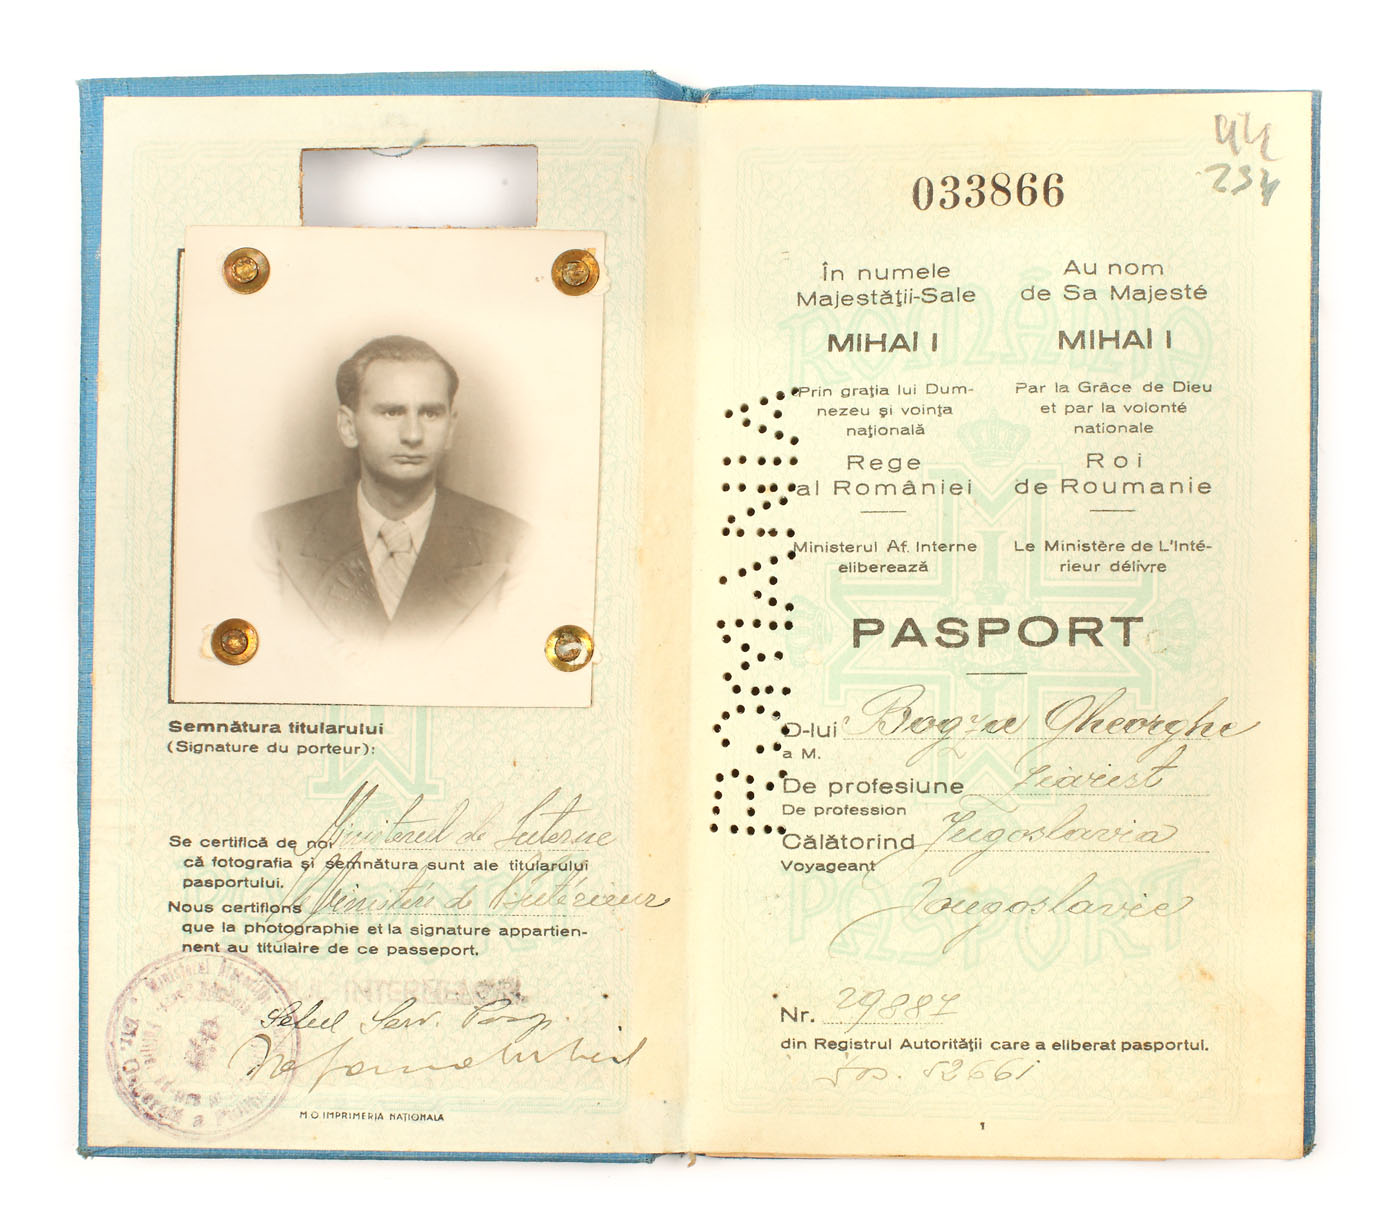 Semnătura titularului
(Signature du porteur):
Se certifică de noi Ministerul de Interne
că fotografia și semnătura sunt ale titularului
pasportului.
Nous certifions le Ministère de l'Intérieur
que la photographie et la signature appartien-
nent au titulaire de ce passeport.
Șeful Serv. Pașp.
M. O. IMPRIMERIA NAȚIONALA
234
033866
În numele
Majestății-Sale
MIHAI I
Prin grația lui Dum-
nezeu și voința
națională
Rege
al României
Ministerul Af. Interne
eliberează
Au nom
de Sa Majesté
MIHAI I
Par la Grâce de Dieu
et par la volonté
nationale
Roi
de Roumanie
Le Ministère de L'Inté-
rieur délivre
ROMANIA
PASPORT
D-lui Bogza Gheorghe
a M.
De profesiune Ziarist
De profession
Călătorind Jugoslavia
Voyageant
Yougoslavie
Nr. 29887
din Registrul Autorității care a eliberat pasportul.
Dos. 52661
1